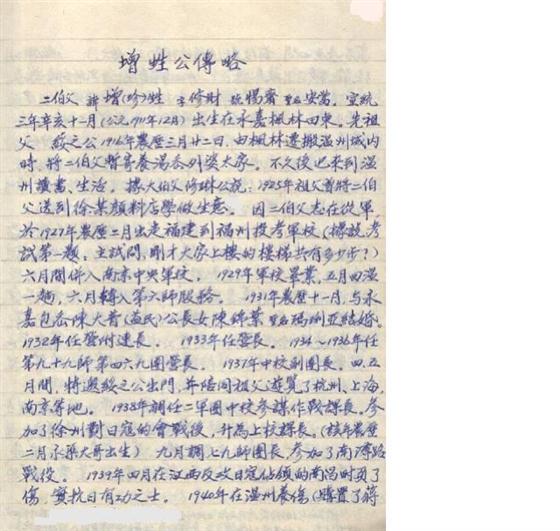 增姓公傳略
二伯父 諱增(珍)姓 字修財 號楊齋 聖名安當，宣統
三年辛亥十一月(公元1911年12月)出生在永嘉楓林四東，先祖
父 綏之公1916年農歷三月廿二日，由楓林遷搬溫州城内
時，將二伯父暫寄養湯岙外婆大家。不久後也來到溫
州讀書、生活。據大伯父修琳公說：1925年祖父曾將二伯
父送到徐某顏料店學做生意。因二伯父志在從軍，
於1927年農歷二月出走福建到福州投考軍校(據說，考
試第一題，主試問，剛才大家上樓的樓梯共有多少步？)
六月間併入南京中央軍校。1929年軍校畢業，五月回溫
一趟，六月轉入第六師服務。1931年農歷十一月，与永
嘉包岙陳大昔(益民)公長女陳錦葉聖名瑪琍亞結婚。
1932年任晉州連長。1933年任營長。1934～1936年任
第九十九師第四六九團營長。1937年中校副團長。四、五
月間，特邀綏之公出門，并陪同祖父遊覽了杭州、上海，
南京等地。1938年調任二軍團中校參謀作戰課長。参加
了徐州對日寇的會戰後，升爲上校課長。(該年農歷
二月永藥大哥出生)九月調七九師團長，参加了南潯路
戰役。1939年四月在江西反攻日寇佔領的南昌時負了
傷，實抗日有功之士。1940年在溫州養傷(購置了蔣